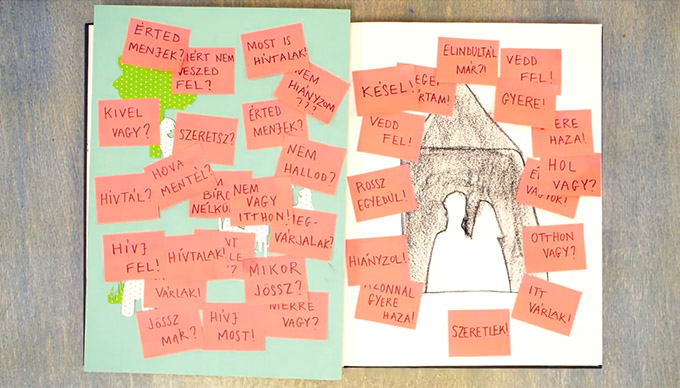 ÉRTED
MENJEK?
MIÉRT NEM
VESZED
FEL?
MOST IS
HÍVTALAK!
NEM
HIÁNYZOM
???
KIVEL
VAGY?
SZERETSZ?
ÉRTED
MENJEK?
NEM
HALLOD?
HÍVTÁL?
HOVA
MENTÉL?
NÉLKÜL
NEM
VAGY
ITTHON!
MEG-
VÁRJALAK?
HÍVJ
FEL!
HÍVTALAK!
VÁRLAK!
MIKOR
JÖSSZ?
JÖSSZ
MÁR?
HÍVJ
MOST!
MERRE
VAGY?
KÉSEL!
ELINDULTÁL
MÁR?!
VEDD
FEL!
GYERE!
VEDD
FEL!
GYERE
HAZA!
HOL
VAGY?
ROSSZ
EGYEDÜL!
HIÁNYZOL!
OTTHON
VAGY?
AZONNAL
GYERE
HAZA!
ITT
VÁRLAK!
SZERETLEK!